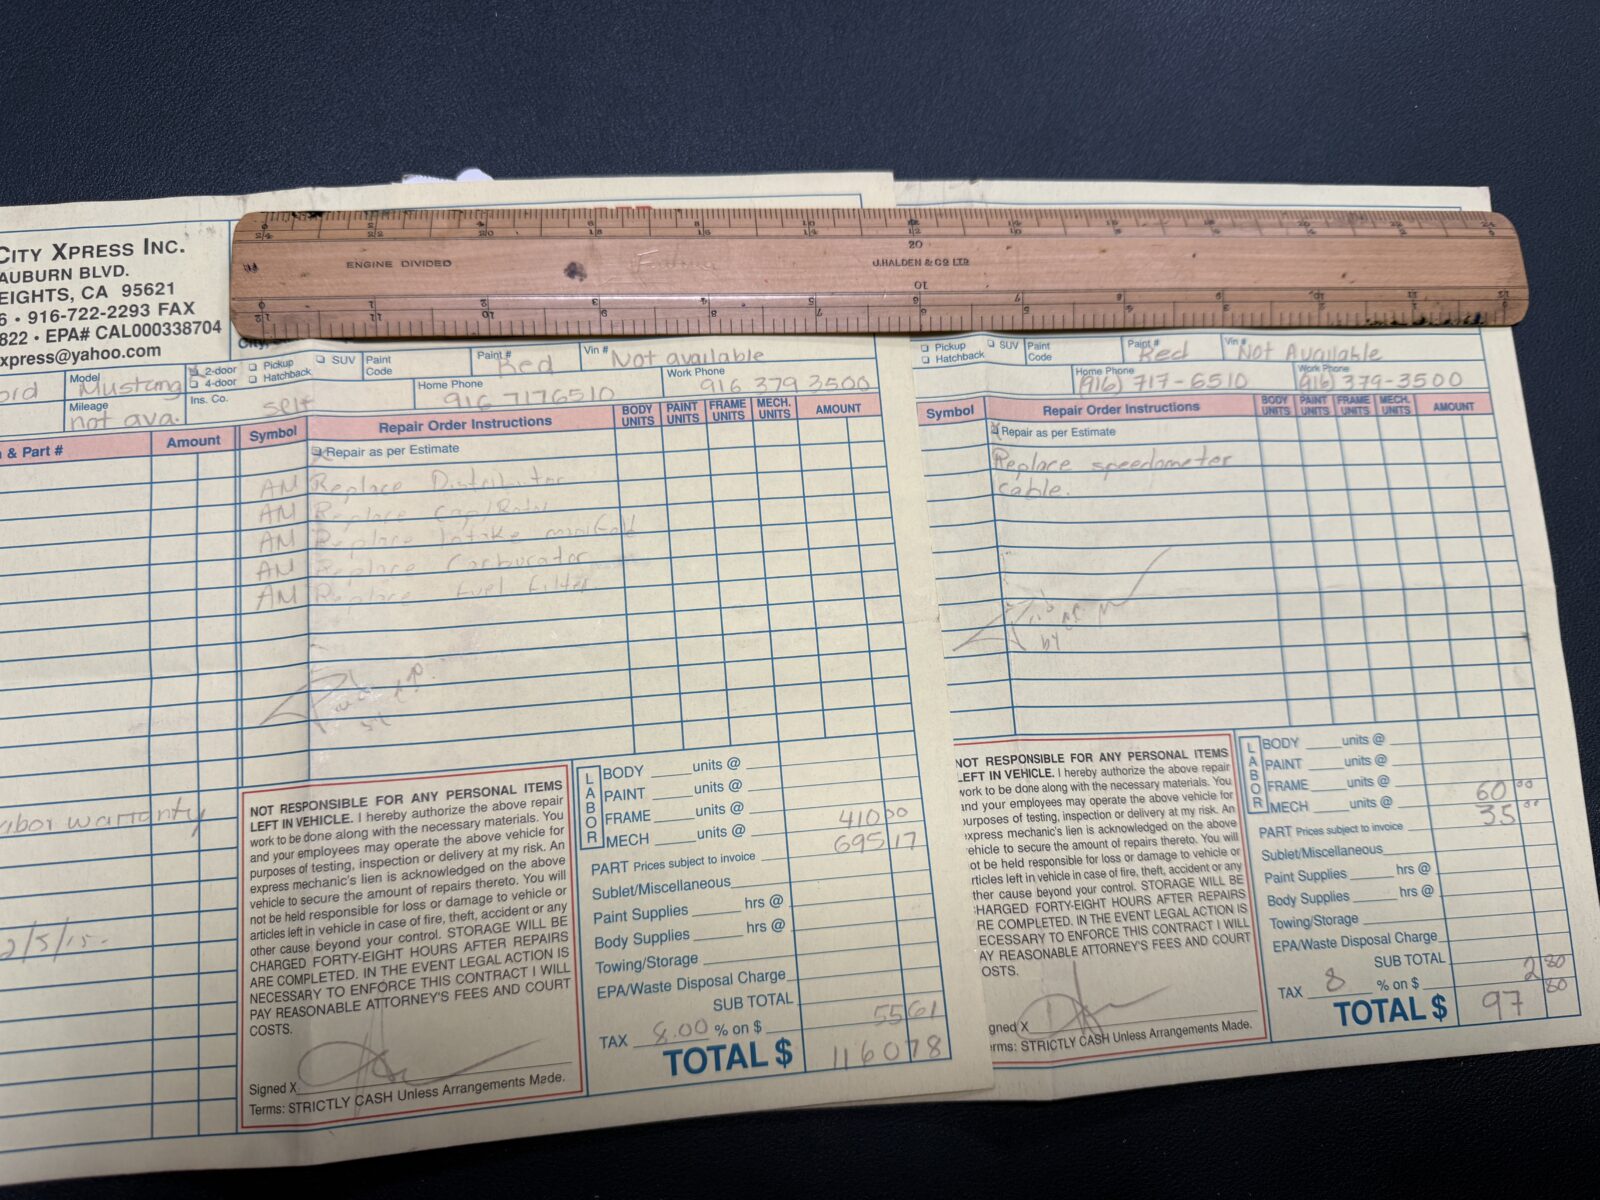 CITY XPRESS INC.
AUBURN BLVD.
EIGHTS, CA 95621
6 • 916-722-2293 FAX
822 • EPA# CAL000338704
xpress@yahoo.com
ENGINE DIVIDED
J.HALDEN & CO LTD
20
10
ord
Model
Mustang
2-door
4-door
Pickup
Hatchback
SUV
Paint
Code
Paint #
Red
Vin #
Not available
Mileage
not ava.
Ins. Co.
self
Home Phone
916 7176510
Work Phone
916 379 3500
& Part #
Amount
Symbol
Repair Order Instructions
BODY UNITS
PAINT UNITS
FRAME UNITS
MECH. UNITS
AMOUNT
Repair as per Estimate
AM Replace Distributor
AM Replace Cap/Rotor
AM Replace Intake manifold
AM Replace Carburator
AM Replace Fuel Filter
abor warranty
2/5/15.
NOT RESPONSIBLE FOR ANY PERSONAL ITEMS
LEFT IN VEHICLE. I hereby authorize the above repair
work to be done along with the necessary materials. You
and your employees may operate the above vehicle for
purposes of testing, inspection or delivery at my risk. An
express mechanic's lien is acknowledged on the above
vehicle to secure the amount of repairs thereto. You will
not be held responsible for loss or damage to vehicle or
articles left in vehicle in case of fire, theft, accident or any
other cause beyond your control. STORAGE WILL BE
CHARGED FORTY-EIGHT HOURS AFTER REPAIRS
ARE COMPLETED. IN THE EVENT LEGAL ACTION IS
NECESSARY TO ENFORCE THIS CONTRACT I WILL
PAY REASONABLE ATTORNEY'S FEES AND COURT
COSTS.
Signed X
Terms: STRICTLY CASH Unless Arrangements Made.
LABOR
BODY units @
PAINT units @
FRAME units @
MECH units @ 410 00
PART Prices subject to invoice 695 17
Sublet/Miscellaneous
Paint Supplies hrs @
Body Supplies hrs @
Towing/Storage
EPA/Waste Disposal Charge
SUB TOTAL
TAX 8.00 % on $ 55 61
TOTAL $ 1160 78
Pickup
Hatchback
SUV
Paint
Code
Paint #
Red
Vin #
Not Available
Home Phone
(916) 717-6510
Work Phone
(916) 379-3500
Symbol
Repair Order Instructions
BODY UNITS
PAINT UNITS
FRAME UNITS
MECH. UNITS
AMOUNT
Repair as per Estimate
Replace speedometer
cable.
by
NOT RESPONSIBLE FOR ANY PERSONAL ITEMS
LEFT IN VEHICLE. I hereby authorize the above repair
work to be done along with the necessary materials. You
and your employees may operate the above vehicle for
urposes of testing, inspection or delivery at my risk. An
xpress mechanic's lien is acknowledged on the above
ehicle to secure the amount of repairs thereto. You will
ot be held responsible for loss or damage to vehicle or
rticles left in vehicle in case of fire, theft, accident or any
ther cause beyond your control. STORAGE WILL BE
HARGED FORTY-EIGHT HOURS AFTER REPAIRS
RE COMPLETED. IN THE EVENT LEGAL ACTION IS
ECESSARY TO ENFORCE THIS CONTRACT I WILL
AY REASONABLE ATTORNEY'S FEES AND COURT
OSTS.
gned X
rms: STRICTLY CASH Unless Arrangements Made.
LABOR
BODY units @
PAINT units @
FRAME units @
MECH units @ 60 00
PART Prices subject to invoice 35 00
Sublet/Miscellaneous
Paint Supplies hrs @
Body Supplies hrs @
Towing/Storage
EPA/Waste Disposal Charge
SUB TOTAL
TAX 8 % on $ 2 80
TOTAL $ 97 80